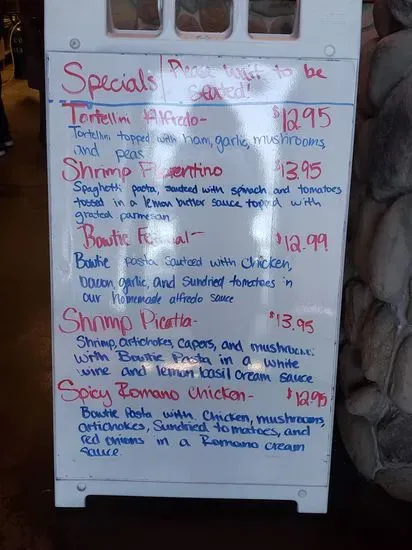 Specials Please wait to be
Seated!
Tortellini Alfredo- $12.95
Tortellini topped with ham, garlic, mushrooms
and peas
Shrimp Florentino $13.95
Spaghetti pasta, sauteed with spinach and tomatoes
tossed in a lemon butter sauce topped with
grated parmesan
Bowtie - $12.99
Bowtie pasta sauteed with chicken,
bacon, garlic, and sundried tomatoes in
our homemade alfredo sauce
Shrimp Picatta- $13.95
Shrimp, artichokes, capers, and mushrooms
with Bowtie Pasta in a white
wine and lemon basil cream sauce
Spicy Romano Chicken- $12.95
Bowtie Pasta with Chicken, mushrooms,
artichokes, Sundried tomatoes, and
red onions in a Romano cream
sauce.